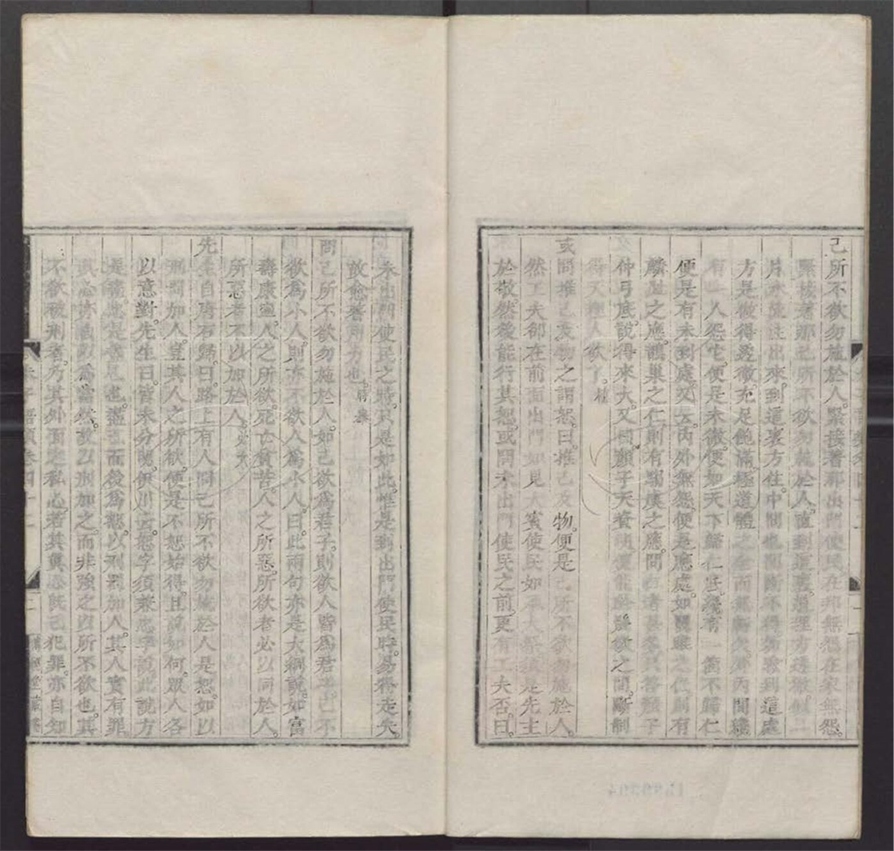 己所不欲勿施於人緊接著那出門使民在邦無怨在家無怨
緊接著那己所不欲勿施於人直到這裏道理方透徹似一
片水流注出來到這裏方住中間也間隔不得到這處
方是做得透徹充足飽滿極道體之全而無虧欠外內間纔
有一人怨它便是未徹便如天下歸仁底纔有一箇不歸仁
便是有未到處又云內外無怨便是應處如關雎之仁則有
麟趾之應鵲巢之仁則有騶虞之應問
仲弓底說得來大又問顏子天資
得天理人欲了植
或問推己及物之謂恕曰推己及物便是己所不欲勿施於人
然工夫卻在前面出門如見大賓使民如承大祭須是先主
於敬然後能行其恕或問未出門使民之前更有工夫否曰
未出門使民之時只是如此惟是到出門使民時易得走失
故愈著用力也時舉
問己所不欲勿施於人如己欲為君子則欲人皆為君子己不
欲為小人則亦不欲人為小人曰此兩句亦是大綱說如富
壽康寧人之所欲死亡貧苦人之所惡所欲者必以同於人
所惡者不以加於人必大
先生自唐石歸曰路上有人問己所不欲勿施於人是恕如以
刑罰加人豈其人之所欲便是不恕始得且說如何眾人各
以意對先生曰皆未分曉伊川云恕字須兼忠字說此說方
是盡忠是盡己也盡己而後為恕以刑罰加人其人實有罪
其心亦自以為當然故以刑加之而非強之以所不欲也其
不欲被刑者乃其外面之私心若其真心既已犯罪亦自知
朱子語類卷四十二